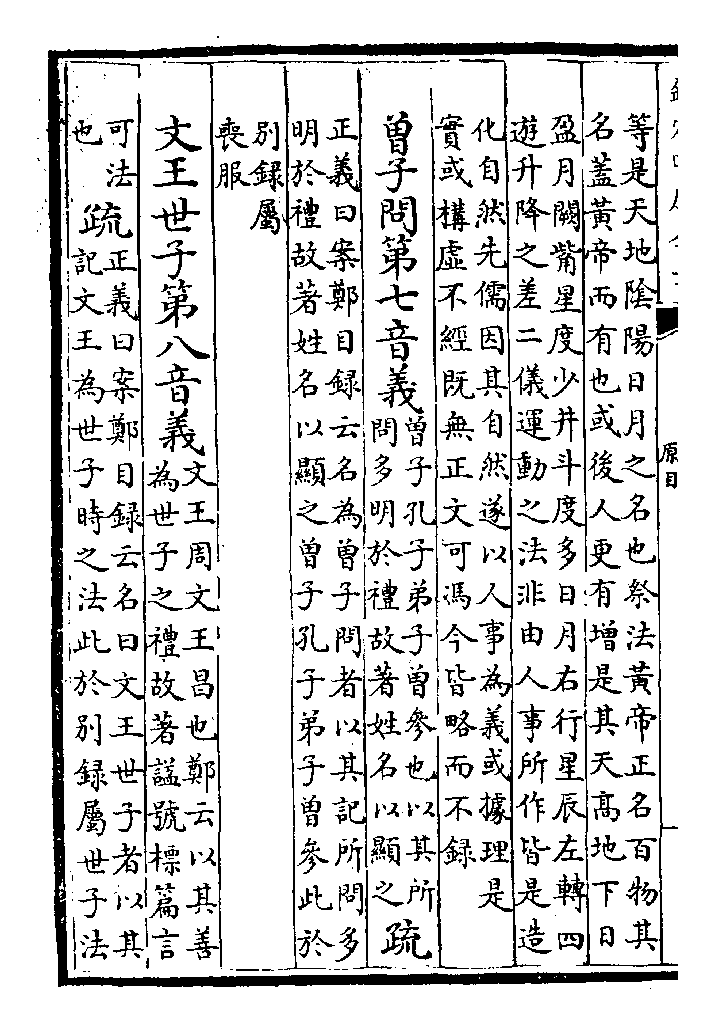 原目
等是天地陰陽日月之名也祭法黃帝正名百物其
名蓋黃帝而有也或後人更有增是其天高地下日
盈月闕觜星度少井斗度多日月右行星辰左轉四
遊升降之差二儀運動之法非由人事所作皆是造
化自然先儒因其自然遂以人事為義或據理是
實或構虛不經既無正文可馮今皆略而不錄
曾子問第七音義
曾子孔子弟子曾參也以其所
問多明於禮故著姓名以顯之
疏
正義曰案鄭目錄云名為曾子問者以其記所問多
明於禮故著姓名以顯之曾子孔子弟子曾參此於
別錄屬
喪服
文王世子第八音義
文王周文王昌也鄭云以其善
為世子之禮故著諡號標篇言
可法
也
疏
正義曰案鄭目錄云名曰文王世子者以其
記文王為世子時之法此於別錄屬世子法